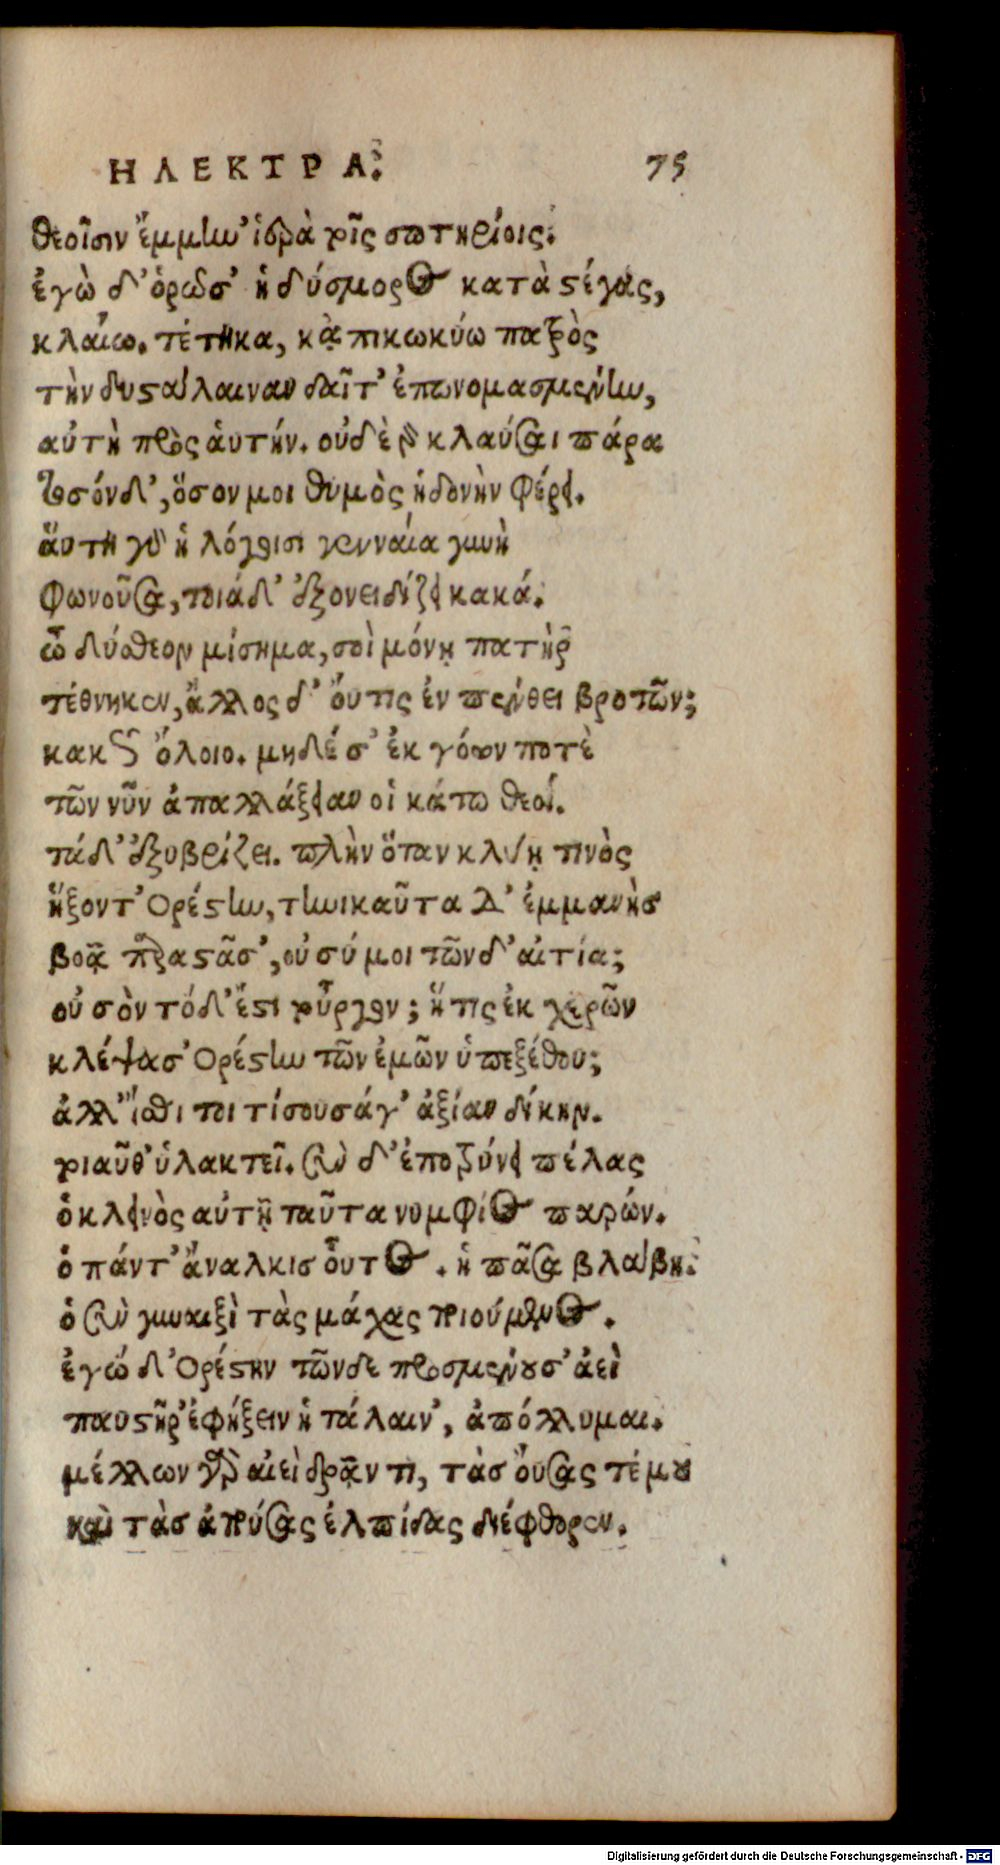 ΗΛΕΚΤΡΑ. 75
θεοῖσιν ἔμμην' ἱερὰ τοῖς σωτηρίοις.
ἐγὼ δ' ὁρῶσ' ἡ δύσμορος κατὰ στέγας,
κλαίω. τέτηκα, κἀπικωκύω πατρὸς
τὴν δυστάλαιναν δαῖτ' ἐπωνομασμένην,
αὐτὴ πρὸς ἁυτήν. οὐδὲ γὰρ κλαῦσαι πάρα
τοσόνδ', ὅσον μοι θυμὸς ἡδονὴν φέρει.
ἅυτη γὰρ ἡ λόγοισι γενναία γυνὴ
φωνοῦσα, τοιάδ' ἐξονειδίζει κακά.
ὦ δύσθεον μίσημα, σοὶ μόνῃ πατὴρ
τέθνηκεν, ἄλλος δ' ὄυτις ἐν πένθει βροτῶν;
κακῶς ὄλοιο. μηδέ σ' ἐκ γόων ποτὲ
τῶν νῦν ἀπαλλάξειαν οἱ κάτω θεοί.
τάδ' ἐξυβρίζει. πλὴν ὅταν κλύῃ τινὸς
ἥξοντ' Ορέστην, τηνικαῦτα δ' ἐμμανὴς
βοᾷ παραστᾶσ', οὐ σύ μοι τῶνδ' αἰτία;
οὐ σὸν τόδ' ἔστι τοὖργον; ἥτις ἐκ χερῶν
κλέψασ' Ορέστην τῶν ἐμῶν ὑπεξέθου;
ἀλλ' ἴσθι τοι τίσουσά γ' ἀξίαν δίκην.
τοιαῦθ' ὑλακτεῖ. σὺν δ' ἐποτρύνει πέλας
ὁ κλεινὸς αὐτῇ ταῦτα νυμφίος παρών.
ὁ πάντ' ἄναλκις οὗτος. ἡ πᾶσα βλάβη.
ὁ σὺν γυναιξὶ τὰς μάχας ποιούμενος.
ἐγώ δ' Ορέστην τῶνδε προσμένουσ' ἀεὶ
παυστῆρ' ἐφήξειν ἡ τάλαιν', ἀπόλλυμαι.
μέλλων γὰρ αἰεὶ δρᾷν τι, τὰς ὄυσας τέ μου
καὶ τὰς ἀπούσας ἐλπίδας διέφθορεν.
Digitalisierung gefördert durch die Deutsche Forschungsgemeinschaft - DFG